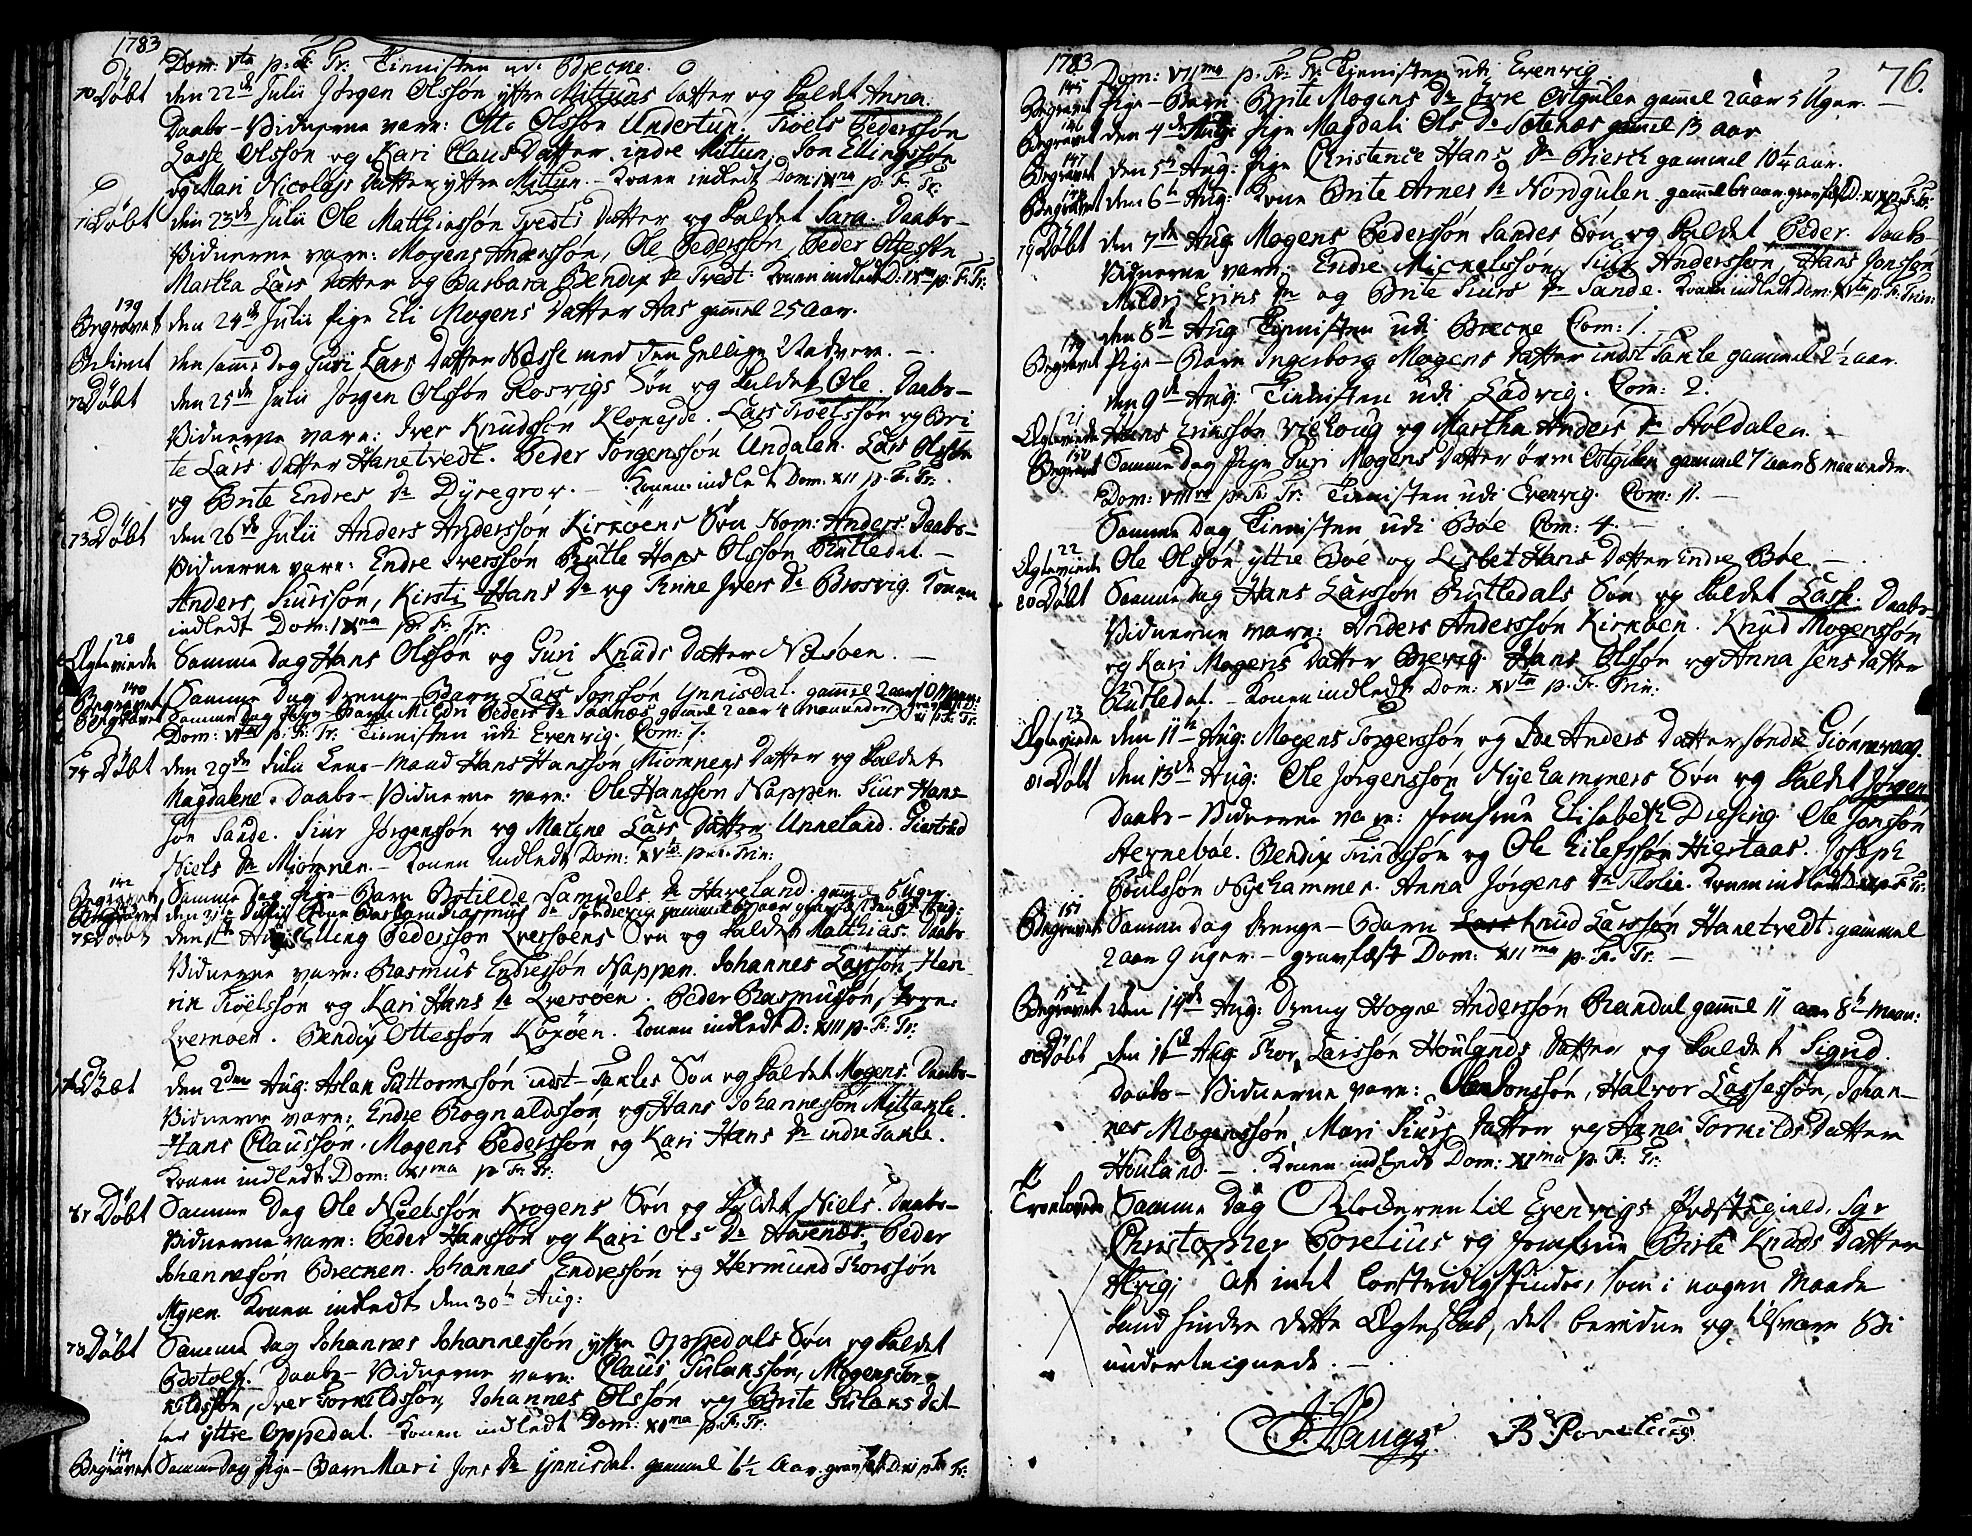 1783
Dom: Vta p: Fr: Tr: Tienisten udi Brecke.
70 Døbt den 22de Julii Jørgen Olssøn yttre Mittuns Datter og kaldet Anna.
Daabs-Vidnerne vare: Otte Olssøn Undertun. Troels Pederssøn
Lasse Olssøn og Kari Claus Datter indre Mittun, Jon Ellingssøn
og Mari Nicolajs Datter yttre Mittun. - Konen indledt Dom: IXna p. Fr. Tr.
71 Døbt den 23de Julii Ole Matthiessøn Tvedts Datter og kaldet Sara. Daabs-
Vidnerne vare: Mogens Anderssøn, Ole Pederssøn, Peder Ottessøn
Martha Lars Datter og Barbara Bendix Dr Tvedt. Konen indledt D: IXna p: Fr: Tr:
139
Begravet den 24de Julii Pige Eli Mogens Datter Aas gamel 25 aar.
Betient den samme Dag Guri Lars Datter Nesse med den Hellige Nadvere. -
72 Døbt den 25de Julii Jørgen Olssøn Slosvigs Søn og kaldet Ole. Daabs-
Vidnerne vare: Iver Knudssøn Klopejde. Lars Troelssøn og Bri
te Lars Datter Hanetvedt. Peder Torgenssøn Undalen. Lars Olssøn
og Brite Endres Dr Dyregrov. - Konen indledt Dom: XII p. Fr. Tr.
73 Døbt den 26de Julii Anders Anderssøn Kirkøens Søn Nom: Anders. Daabs-
Vidnerne vare: Endre Iverssøn Rutle Hans Olssøn Rutledal. -
Anders Siurssøn, Kirsti Hans Dr og Anne Ivers Dr Brosvig. Konen
indledt Dom: IXna p. Fr. Tr.
20
Ægteviede Samme Dag Hans Olssøn og Guri Knuds Datter Nesøen. -
140
Begravet Samme Dag Drenge-Barn Lars Jonssøn Ynnisdal. gammel 2 aar 10 Maan:
Begravet Samme Dag Pige-Barn Mildri Peders Dr gamel 2 aar 4 Maaneder
Dom: VIta p: Fr: Tr: Tienisten udi Evenvig. Com: 7.
74 Døbt den 29de Julii Lens-Mand Hans Hanssøn Miømnens Datter og kaldet
Magdalene. Daabs-Vidnerne vare: Ole Hanssøn Nappen. Siur Hans-
søn Sande. Siur Jørgenssøn og Malene Lars Datter Unneland. Giertrud
Niels Dr Miømnen. - Konen indledt Dom: XVta p. Fr. Trin:
142
Begravet Samme Dag Pige-Barn Botilde Samuels Dr Haveland. gamel 6 uger.
Begravet den 31te Julii Kone Rasmus Dr
75 Døbt den 1te Aug: Elling Pederssøn Qversøens Søn og kaldet Matthias. Daabs-
Vidnerne vare: Rasmus Endressøn Nappen. Johannes Larssøn, Hen-
rik Troelssøn og Kari Hans Dr Qversøen. Peder Rasmussøn
Bendix Ottessøn Koxøen. Konen indledt D: XIII p. Fr. Tr:
76 Døbt den 2den Aug: Aslak Guttormssøn indst-Takles Søn og kaldet Mogens. Daabs-
Vidnerne vare: Endre Rognaldssøn og Hans Johannessøn Mittakle.
Hans Claussøn, Mogens Pederssøn og Kari Hans Dr indre Takle.
Konen indledt Dom: XIma p Fr. Tr.
87 Døbt Samme Dag Ole Nielssøn Krogens Søn og kaldet Niels. Daabs-
Vidnerne vare: Peder Hanssøn og Kari Ols Dr Havenes, Peder
Johannessøn Brecken. Johannes Endressøn og Hermund Thorssøn
Myren. Konen indledt den 30te Aug:
78 Døbt Samme Dag Johannes Johannessøn yttre Oppedals Søn og kaldet
Botolf. Daabs-Vidnerne vare: Claus Gulakssøn, Mogens Tor-
kildssøn, Iver Torkildssøn, Johannes Olssøn og Brite Gulaks Dat-
ter yttre Oppedal. Konen indledt Dom: XIma p. Fr. Tr.
144
Begravet Samme Dag Pige-Barn Mari Jons Dr Ynnisdal. gammel 6 1/2 Aar. gravfæst D: XI p Fr Tr:
1783
76.
Dom: VIIma p. Fr: Tr: Tienisten udi Evenvig
145
Begravet Pige-Barn Brite Mogens Dr øvre Østgulen gamel 2 aar 5 Uger. -
146
Begravet den 4de Aug: Pige Magdali Ols Dr Sætenæs gamel 13 aar
147
Begravet den 5te Aug: Pige Christence Hans Dr Bierch gammel 10 1/4 aar.
148
Begravet den 6te Aug: Kone Brite Arnes Dr Nordgulen gammel 61 aar. gravfæst D: XIX p. Fr: Tr:
79 Døbt den 7de Aug Mogens Pederssøn Sandes Søn og kaldet Peder. Daabs-
Vidnerne vare: Endre Mickelssøn, Siur Anderssøn, Hans Jonssøn
Mildri Eriks Dr og Brite Siurs Dr Sande. Konen indledt Dom: XVta p. Fr. Trin:
den 8de Aug Tienisten udi Brecke Com: 1.
149
Begravet Pige-Barn Ingeborg Mogens Datter indst Takle gammel 2 1/2 aar.
den 9de Aug: Tienisten udi Ladvig. Com: 2.
21
Ægteviede Hans Erikssøn og Martha Anders Dr Høldalen. -
150
Begravet Samme Dag Pige Guri Mogens Datter øvre Østgulen gammel 7 aar 8 maaneder.
Dom: VIIIva p. Fr: Tr: Tienisten udi Evenvig. Com: 11. -
Samme Dag Tienisten udi Bøe Com: 4. -
22
Ægteviede Ole Olssøn yttre Bøe og Lisbet Hans Datter indre Bøe. -
80 Døbt Samme Dag Hans Larssøn Rutledals Søn og kaldet Lasse. Daabs-
Vidnerne vare: Anders Anderssøn Kirkøen. Knud Mogenssøn
og Kari Mogens Datter Brevig. Hans Olssøn og Anna Jens Datter
Rutledal. - Konen indledt Dom: XVta p. Fr. Trin:
23
Ægteviede den 11te Aug: Mogens Torgerssøn og Ide Anders Datter søndre Giønnevaag.
81 Døbt den 13de Aug: Ole Jørgenssøn Nyehammers Søn og kaldet Jørgen
Daabs-Vidnerne vare: Jomfrue Elisabeth Diesing. Ole Jonssøn
Hernebøe. Bendix Findssøn og Ole Eilefssøn Hiertaas. Joseph
Poulssøn Nyehammer. Anna Jørgens Dr Konen indledt
151
Begravet Samme Dag Drenge-Barn Knud Larssøn Hanetvedt. gammel
2 aar 9 uger. - gravfæst Dom: XIIma p. Fr. Tr. -
152
Begravet den 14de Aug: Dreng Hogne Anderssøn Randal gammel 11 aar 8 Maan:
82 Døbt den 16de Aug Thor Larssøn Houlands Datter og kaldet Sigrid.
Daabs-Vidnerne vare: Jonssøn, Halvor Lassessøn, Johan-
nes Mogenssøn, Mari Siurs Datter og Torkilds Datter
Houland. - Konen indledt Dom: XIma p. Fr: Tr:
Troelovede Samme Dag Klockeren til Evenvigs Præstegield, Sgr
Christopher Povelius og Jomfrue Birte Knuds Datter
at intet findes, som i nogen Maade
kand hindre dette Ægteskab, det bevidne og tilsvare Vi
underteignede. -
B Povelius